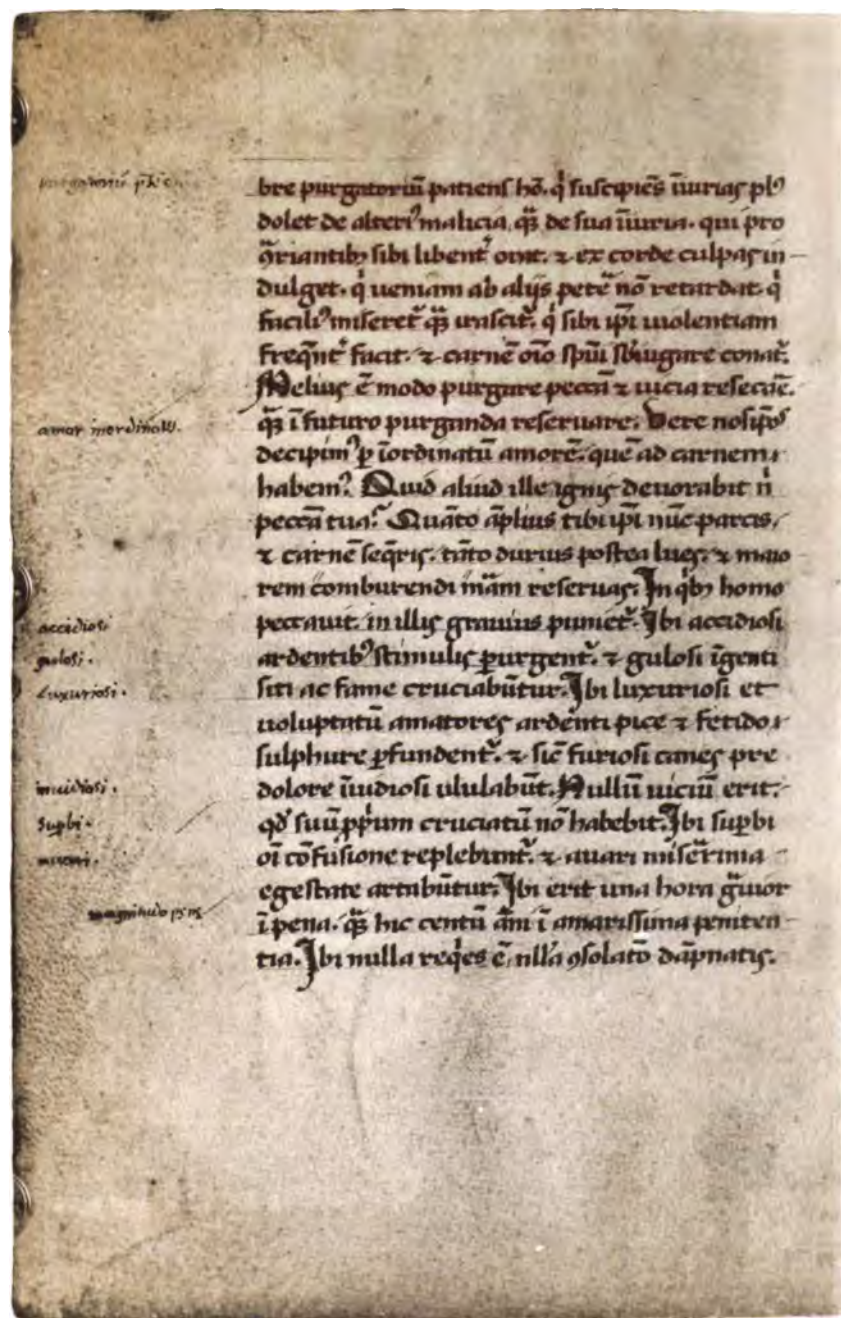 bre purgatoriū patiens hō. q̇ suscipiēs iīurias plꝰ
dolet de alteriꝰ malicia, q̄ȝ de sua iīuria. qui pro
ꝯ̄riantibȝ sibi libent᷑ orat. ⁊ ex corde culpas in
dulget. q̇ ueniam ab alijs petē nō retardat. q̇
faciliꝰ miseret᷑ q̄ȝ irascit᷑. q̇ sibi ip̄i uiolentiam
freq̄nt᷑ facit. ⁊ carnē oīo sp̄ui sb̄iugare conat᷑.
Melius ē modo purgare pecc̄a ⁊ uicia resecāē.
q̄ȝ ī futuro purganda reseruare. Vere nosip̄os
decipimꝰ ꝑ īordinatū amorē. quē ad carnem
habemꝰ. Quid aliud ille ignis deuorabit n̄
pecc̄a tua? Quāto āplius tibi ip̄i nūc parcis.
⁊ carnē seq̄ris. tāto durius postea lues. ⁊ maio
rem comburendi mām reseruas. In q̇bȝ homo
peccauit. in illis grauius puniet᷑. Ibi accidiosi
ardentibꝰ stimulis ꝑurgent᷑. ⁊ gulosi īgenti
siti ac fame cruciabūtur. Ibi luxuriosi et
uoluptatū amatores ardenti pice ⁊ fetido
sulphure ꝑfundent᷑. ⁊ sic̄ furiosi canes pre
dolore iīuidiosi ululabūt. Nullū uiciū erit.
qd̄ suū ꝓprium cruciatū nō habebit. Ibi suꝑbi
oī cōfusione replebunt᷑. ⁊ auari misērima
egestate artabūtur. Ibi erit una hora g̈uior
ī pena. q̄ȝ hic centū āni ī amarissima peniten
tia. Ibi nulla req̇es ē, nll'a ꝯsolatō dāpnatis.
amor inordinatus.
accidiosi
gulosi.
Luxuriosi.
inuidiosi.
Suꝑbi.
auari.
magnitudo penis